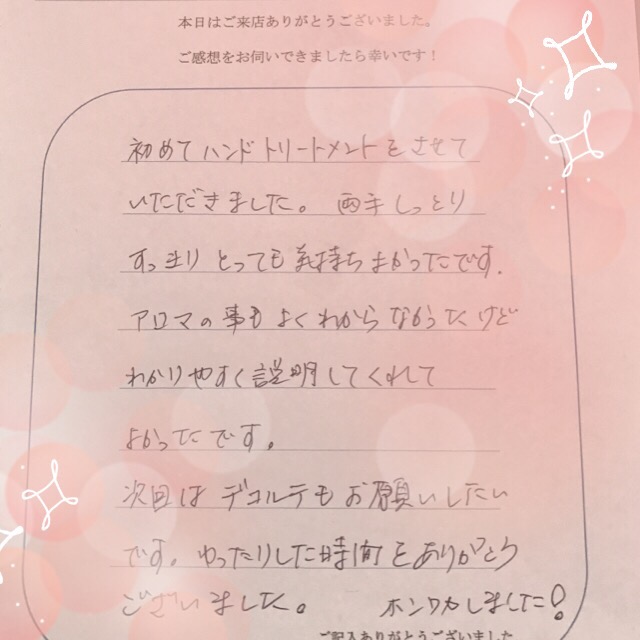 本日はご来店ありがとうございました。
ご感想をお伺いできましたら幸いです！
初めてハンドトリートメントをさせて
いただきました。両手しっとり
すっきりとっても気持ちよかったです.
アロマの事もよくわからなかったけど
わかりやすく説明してくれて
よかったです。
次回はデコルテもお願いしたい
です。ゆったりした時間をありがとう
ございました。 ホンワカしました!
ご記入ありがとうございました